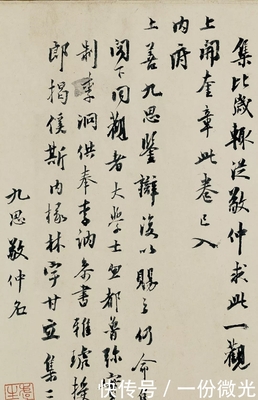 集比歲輒從敬仲求此一觀
上開奎章此卷已入
內府
上善九思鑒辯復以賜之仍命
閣下同觀者大學士忽都魯弥
制李泂供奉李訥叅書雅琥授
郎揭傒斯內掾林宇甘立集
九思敬仲名
快传号/一份微光